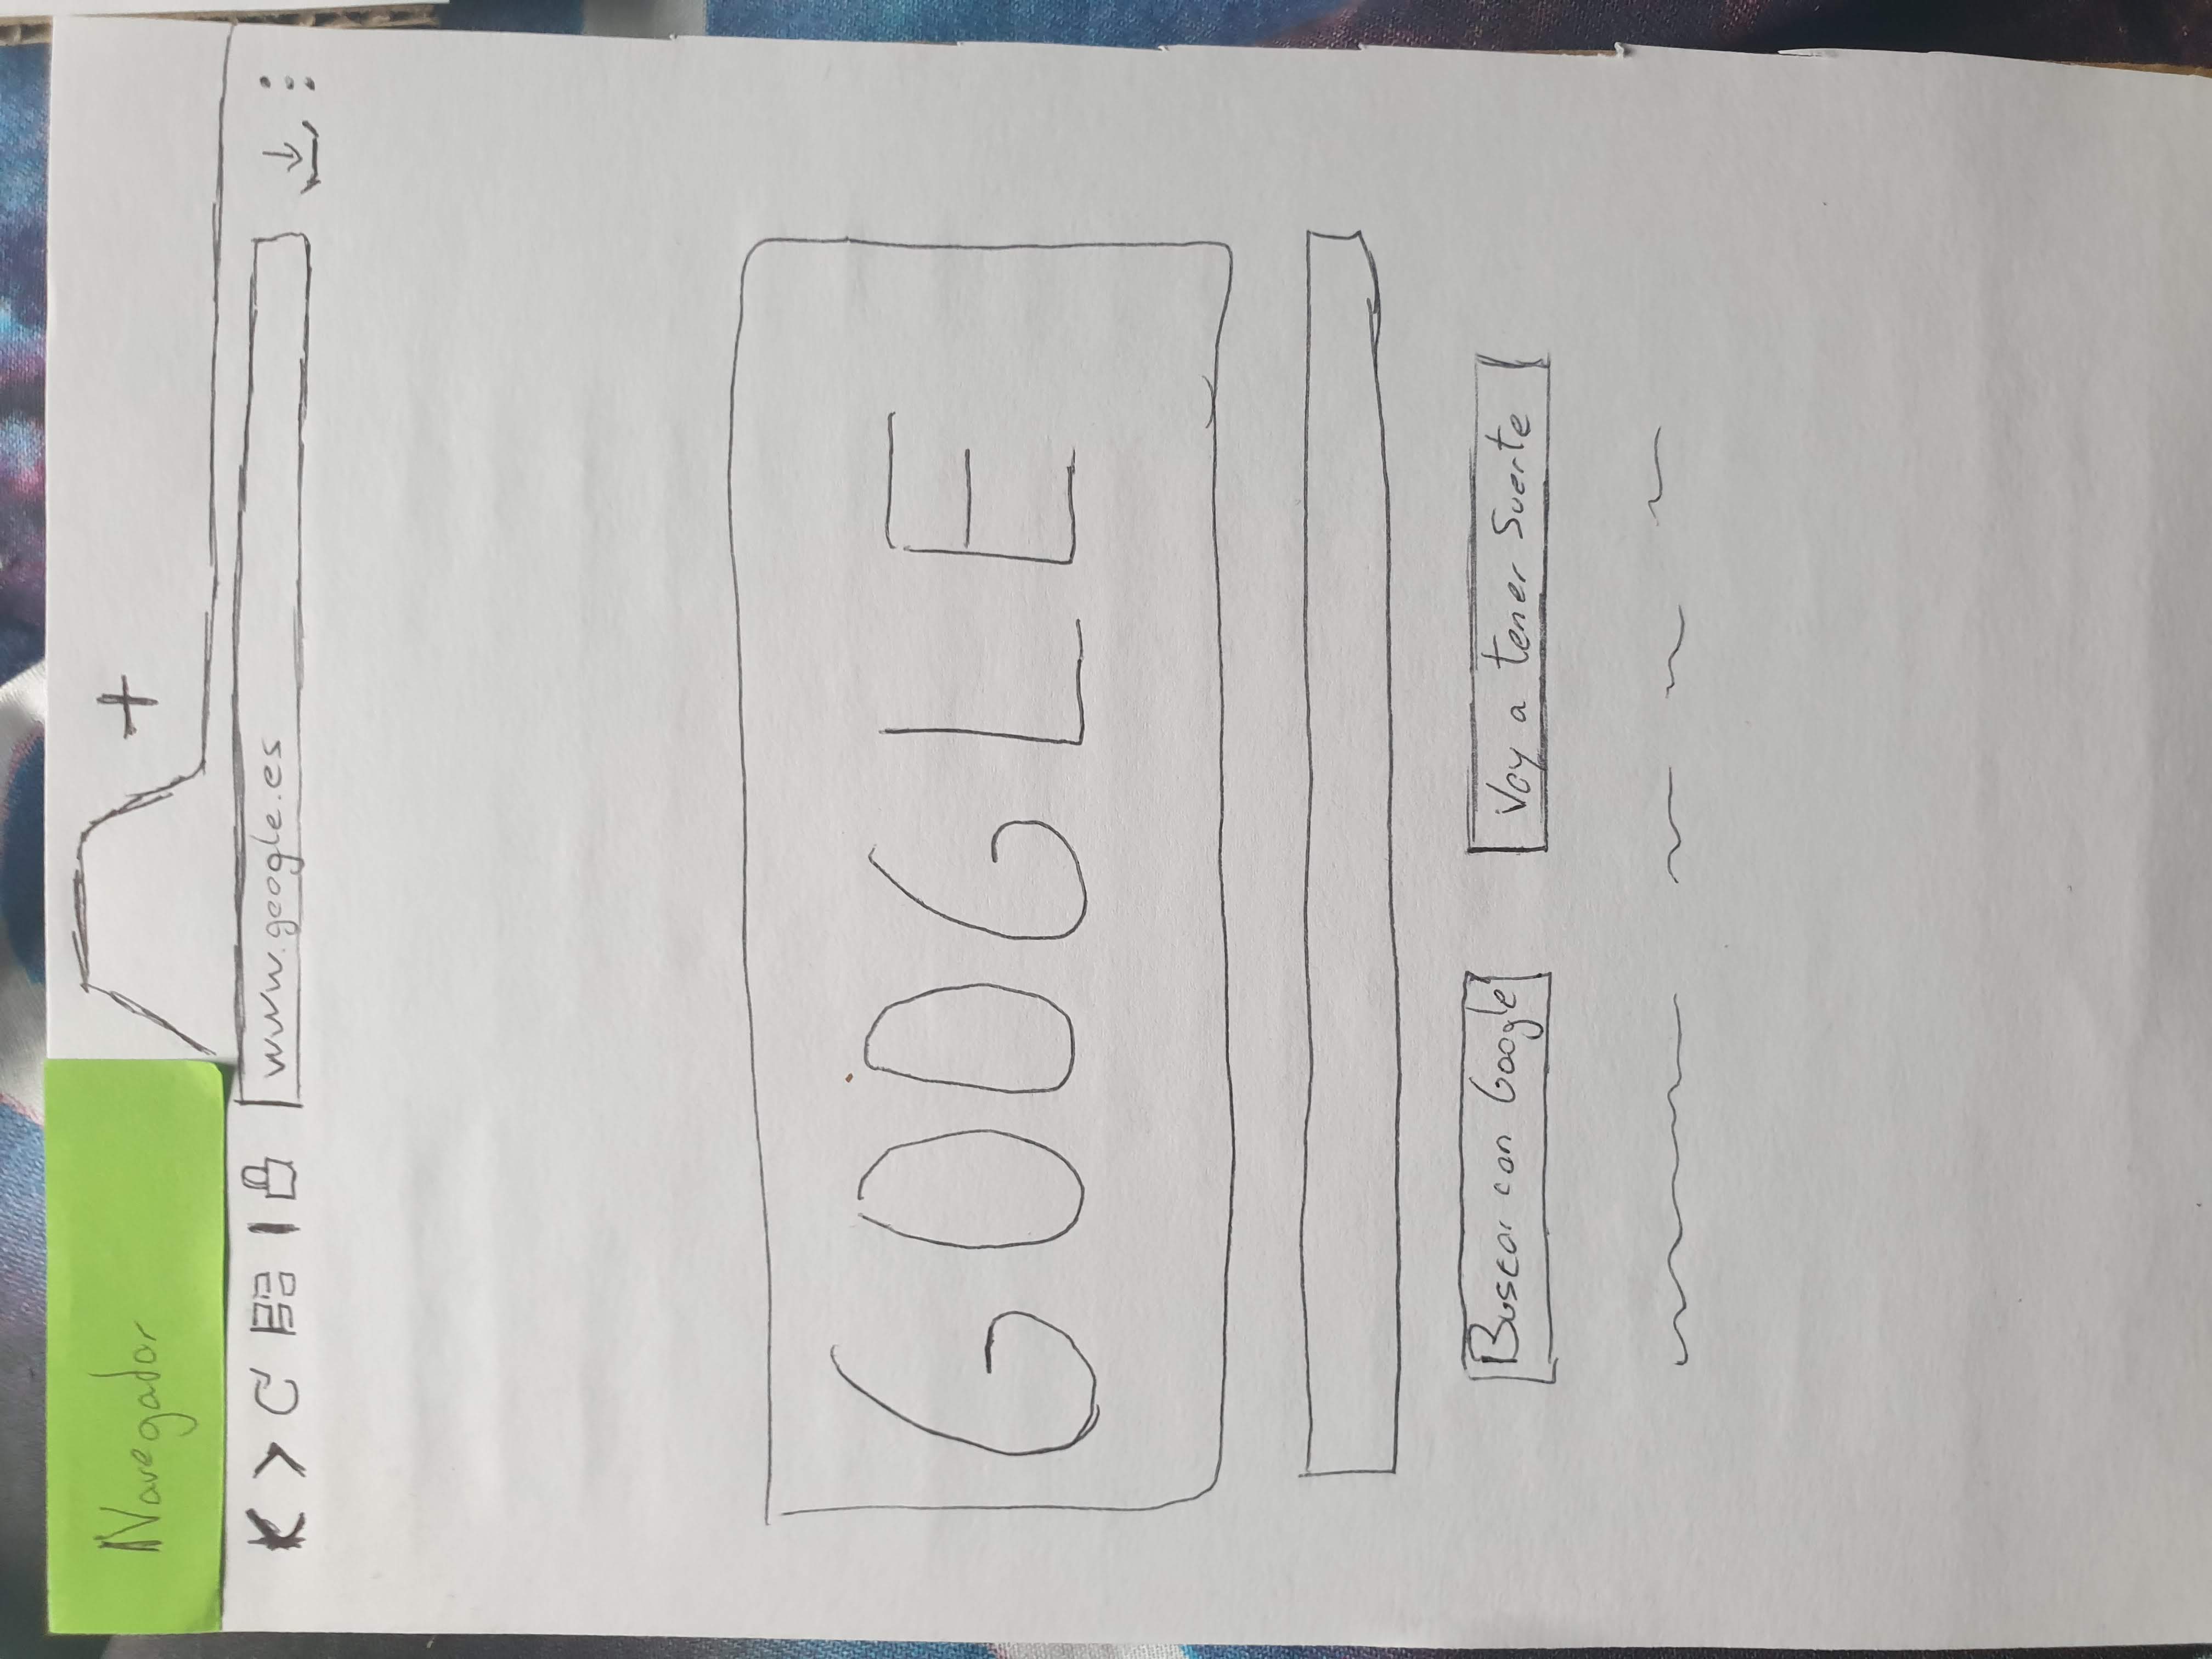 Navegador
www.google.es
GOOGLE
Buscar con Google
Voy a tener Suerte